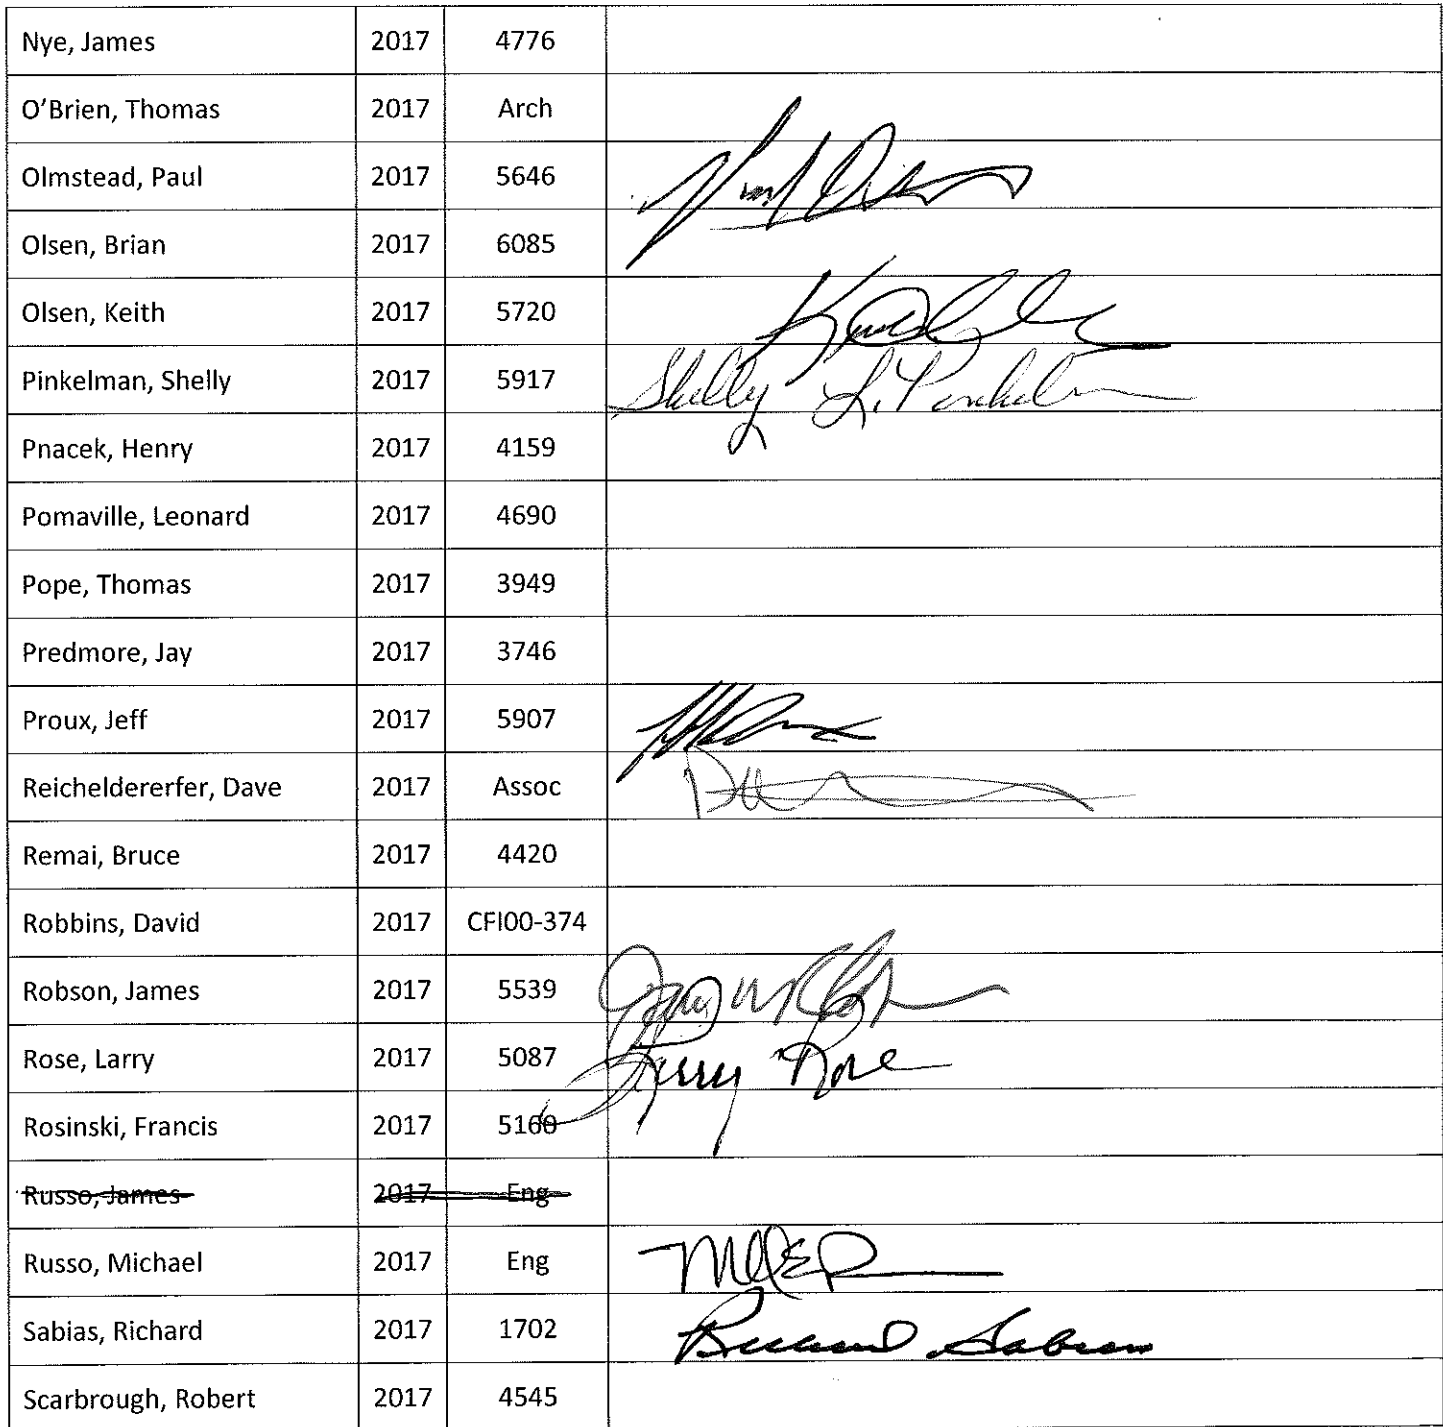 Nye, James 2017 4776
O'Brien, Thomas 2017 Arch
Olmstead, Paul 2017 5646
Olsen, Brian 2017 6085
Olsen, Keith 2017 5720
Pinkelman, Shelly 2017 5917 Shelly L.
Pnacek, Henry 2017 4159
Pomaville, Leonard 2017 4690
Pope, Thomas 2017 3949
Predmore, Jay 2017 3746
Proux, Jeff 2017 5907
Reicheldererfer, Dave 2017 Assoc
Remai, Bruce 2017 4420
Robbins, David 2017 CFI00-374
Robson, James 2017 5539
Rose, Larry 2017 5087 Larry Rose
Rosinski, Francis 2017 5160
Russo, James 2017 Eng
Russo, Michael 2017 Eng
Sabias, Richard 2017 1702 Richard Sabias
Scarbrough, Robert 2017 4545